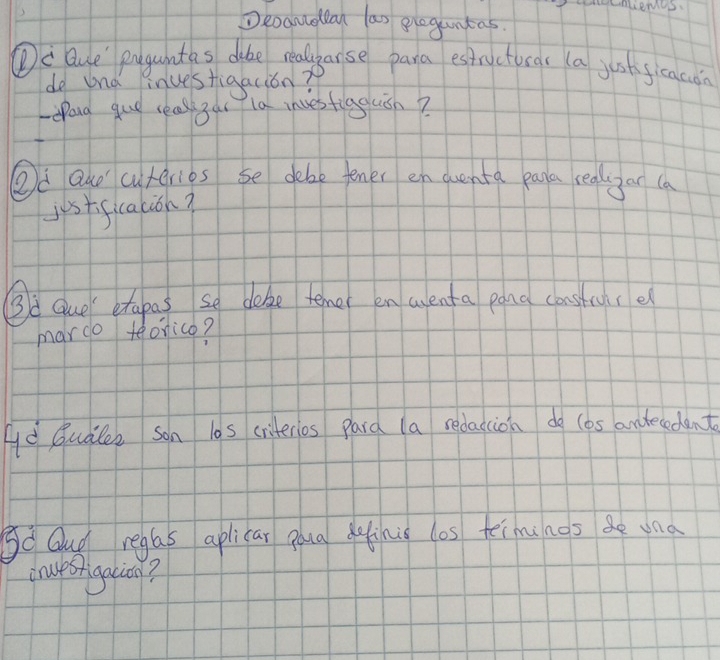 Desarrollar las preguntas.
① ¿Qué preguntas debe realizarse para estructurar la justificación
de una investigación?
- ¿Para qué realizar la investigación?
-
② ¿Qué criterios se debe tener en cuenta para realizar la
justificación?
③ ¿Qué etapas se debe tener en cuenta para construir el
marco teórico?
4 ¿Cuáles son los criterios para la redacción de los antecedente
5 ¿Qué reglas aplicar para definir los términos de una
investigación?